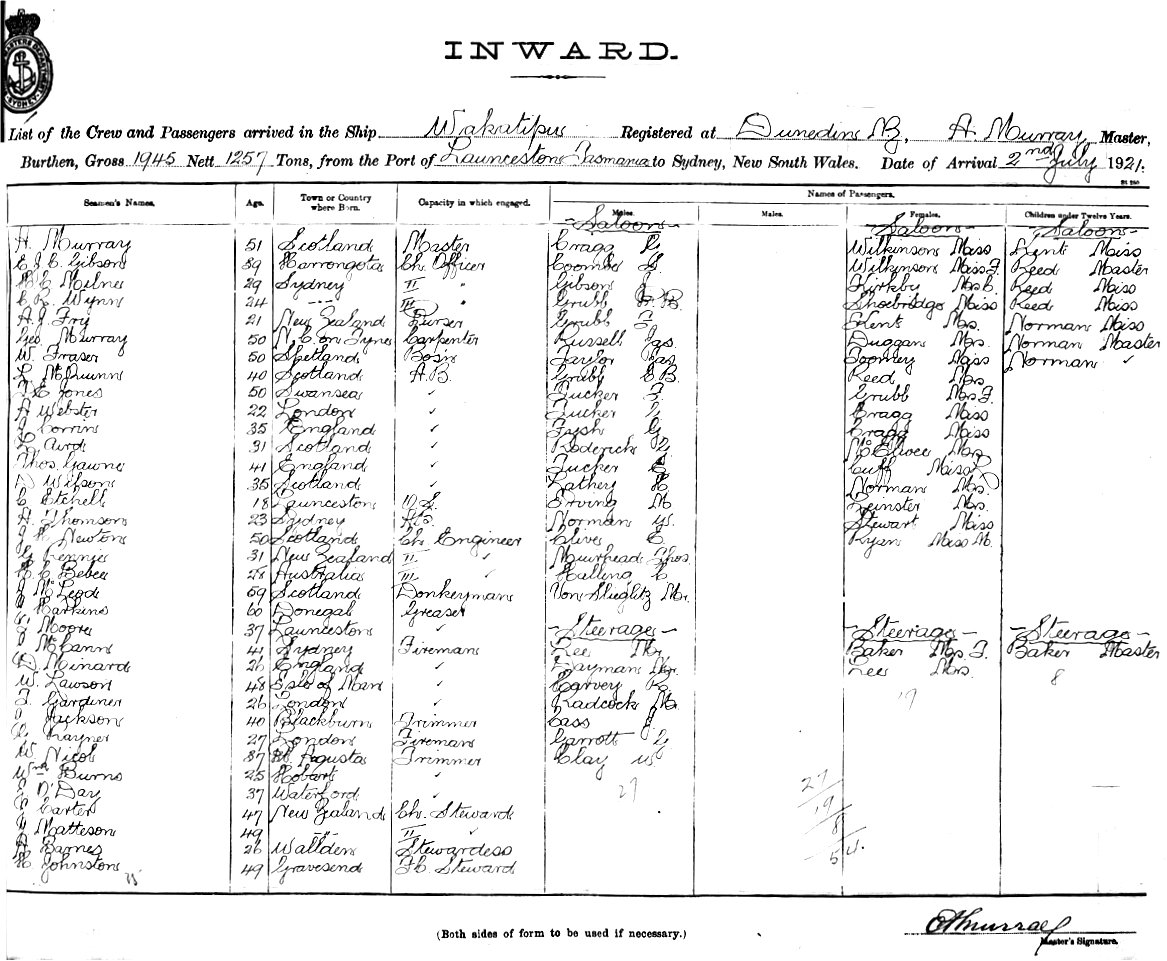 INWARD.
List of the Crew and Passengers arrived in the Ship Wakatipu Registered at Dunedin NZ, A. Murray Master,
Burthen, Gross 1945 Nett 1257 Tons, from the Port of Launceston Tasmania to Sydney, New South Wales. Date of Arrival 2nd July 1921.
Seamen's Names. Age. Town or Country where Born. Capacity in which engaged. Names of Passengers.
Males. Males. Females. Children under Twelve Years.
Saloon Saloon Saloon
A. Murray 51 Scotland Master Cragg G Wilkinson Miss Kent Miss
E J C Gibson 39 Ch. Officer Coombe S. Wilkinson Miss F. Reed Master
Milne 29 Sydney II " Gibson Kirkby Mrs C. Reed Miss
Wynn 24 --- III " Grubb Shoebridge Miss Reed Miss
A. J Fry 21 New Zealand Purser Grubb F. Kent Mrs. Norman Miss
Geo Murray 50 N. C. on Tyne Carpenter Russell Jas. Duggan Mrs. Norman Master
W. Fraser 50 Shetland Bos'n Taylor Jas Toomey Miss Norman "
L McQuinn 40 Scotland A.B. Grubb C B. Reed Mrs
Jones 50 Swansea " Tucker F. Grubb Mrs F.
A Webster 22 London " Tucker G Cragg Miss
Corrin 35 England " Fysh G Cragg Miss
Aird 31 Scotland " Roderick Mrs
Thos. Gawne 41 England " Tucker E. Cuff Miss
Wilson 35 Scotland " Lathey H Norman Mrs.
C Etchell 18 Launceston O.S. Erving M. Leinster Mrs.
A. Thomson 23 Sydney A.B. Norman W. Stewart Miss
J H Newton 50 Scotland Ch. Engineer Clive C. Ryan Miss M.
Rennie 31 New Zealand II " Muirhead Thos.
H. C Bebee 28 Australia III " Halling C
J McLeod 59 Scotland Donkeyman Von Stieglitz Mr.
Harkins 60 Donegal Greaser
J Moore 37 Launceston " Steerage Steerage Steerage
McCann 41 Sydney Fireman Lee Mr. Baker Mrs F. Baker Master
Minard 26 England " Dayman Mr. Lee Mrs. 8
W. Lawson 48 Isle of Man " Harvey R. 19
F. Gardiner 26 London " Radcock Mr.
Jackson 40 Blackburn Trimmer Cass J
Rayner 27 London Fireman Garrott G
W. Nicol 37 Pt. Augusta Trimmer Clay W
Wm Burns 25 Hobart " 27
O'Day 37 Waterford " 27
Carter 47 New Zealand Ch. Steward 19
Matteson 49 -"- II " 8
A Barnes 26 Wallden Stewardess 54.
H. Johnston 49 Gravesend F.C. Steward
35
(Both sides of form to be used if necessary.)
Master's Signature.